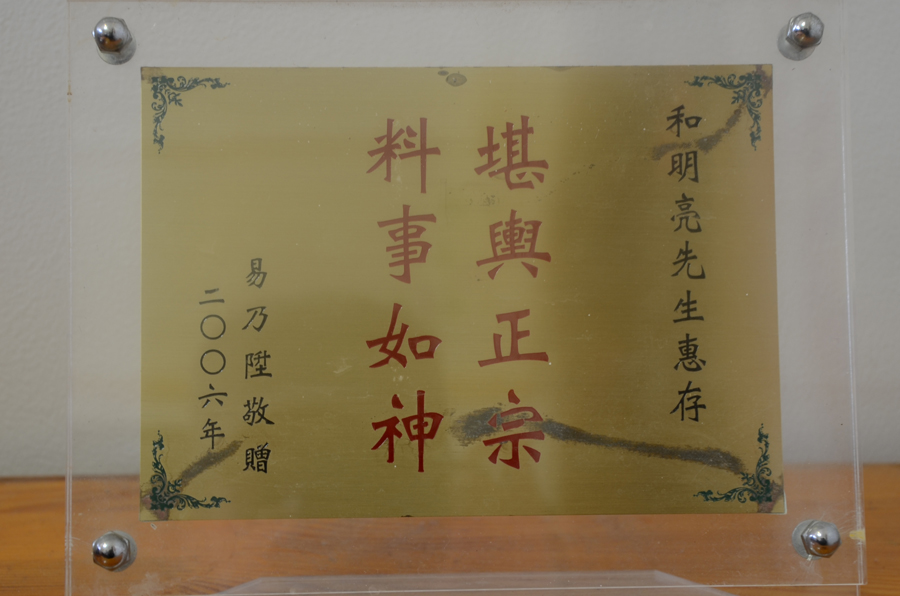 和明亮先生惠存
堪輿正宗
料事如神
易乃陞敬贈
二〇〇六年